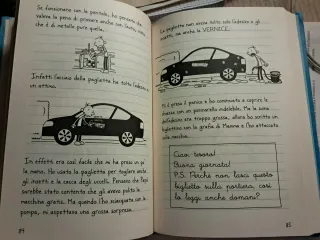 Se funzionava con le pentole, ho pensato che
valeva la pena di provare anche con l'auto, visto
che è di metallo pure quella.
Infatti l'acciaio della paglietta ha tolto l'adesivo in
un attimo.
In effetti era così facile che mi ha preso un po'
la mano. Ho usato la paglietta per togliere anche
gli insetti e la cacca degli uccelli. Pensavo che Papà
sarebbe stato contento che gli avevo pulito la
macchina gratis. Ma quando l'ho sciacquata con la
pompa, mi aspettava una grossa sorpresa.
84
La paglietta non aveva tolto solo l'adesivo e gli
insetti, ma anche la VERNICE.
Mi è preso il panico e ho cominciato a coprire le
chiazze con un pennarello indelebile. Ma la zona
dell'adesivo era troppo grossa, allora ho scritto un
bigliettino con la grafia di Mamma e l'ho attaccato
sulla macchia.
Ciao, tesoro!
Buona giornata!
P.S. Perché non lasci questo
biglietto sulla portiera, così
lo leggi anche domani?
85